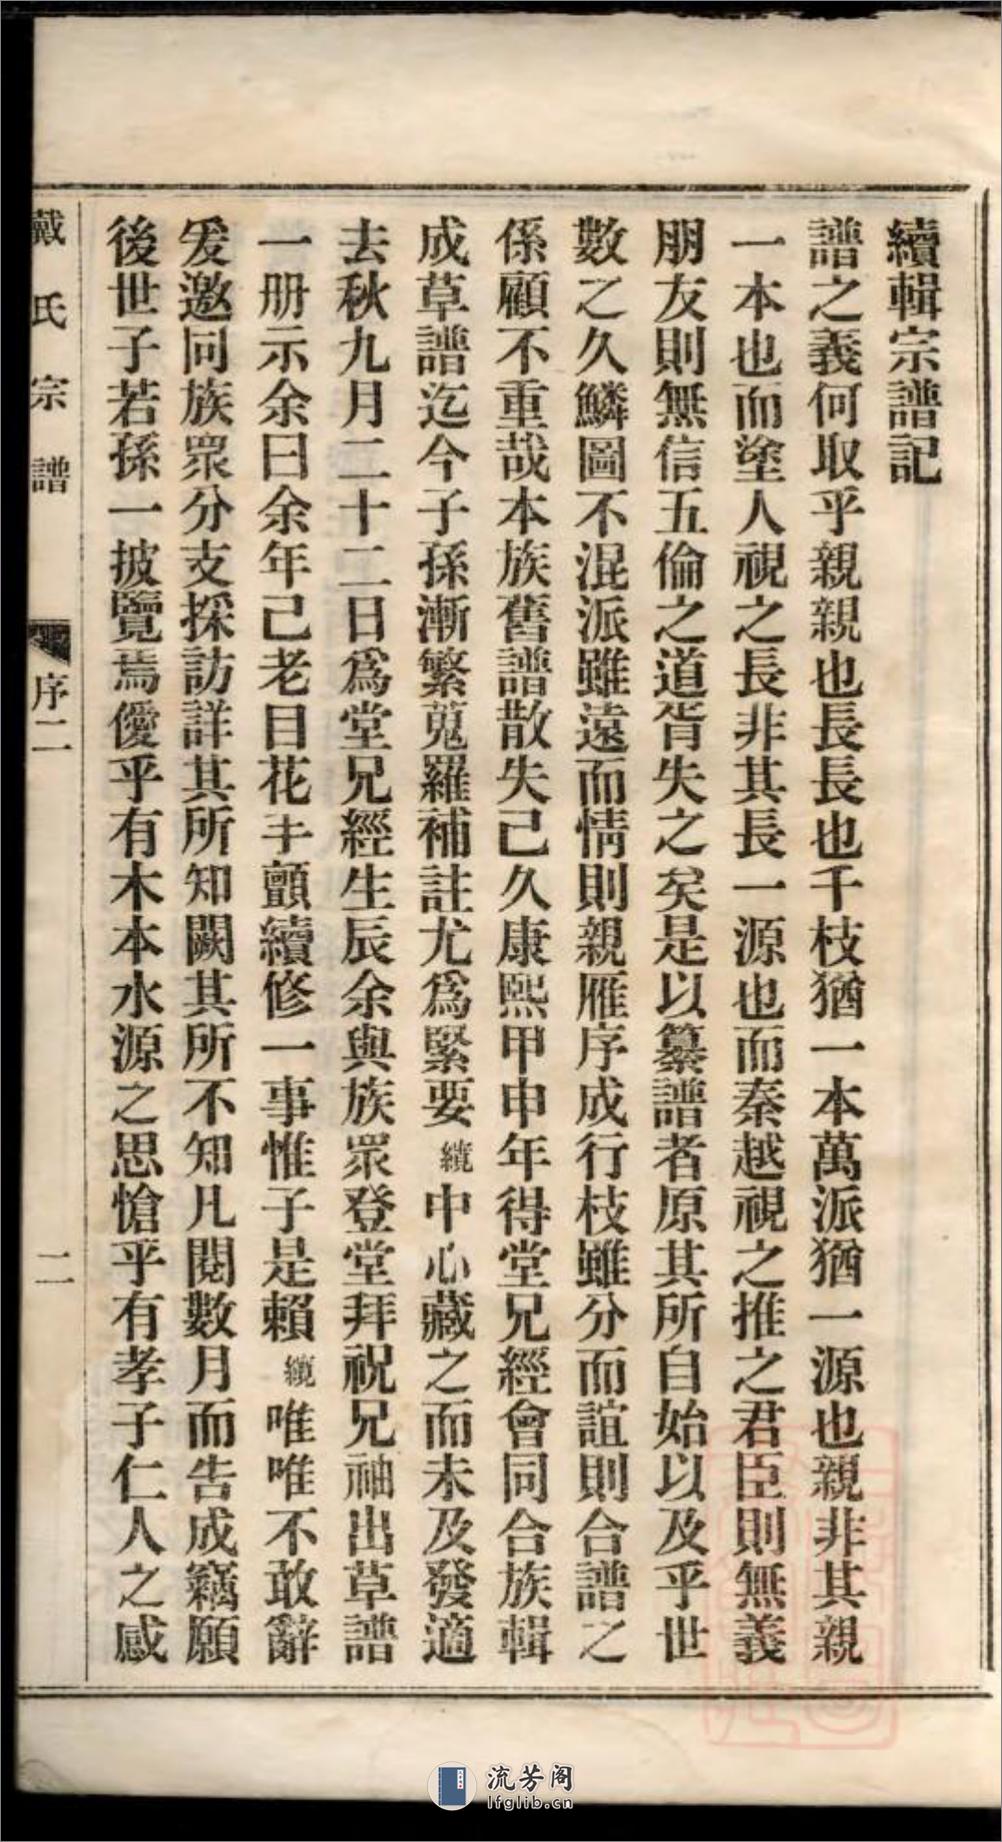 續輯宗譜記
譜之義何取乎親親也長長也千枝猶一本萬派猶一源也親非其親
一本也而塗人視之長非其長一源也而秦越視之推之君臣則無義
朋友則無信五倫之道胥失之矣是以纂譜者原其所自始以及乎世
數之久鱗圖不混派雖遠而情則親雁序成行枝雖分而誼則合譜之
係顧不重哉本族舊譜散失己久康熙甲申年得堂兄經會同合族輯
成草譜迄今子孫漸繁蒐羅補註尤爲緊要纘中心藏之而未及發適
去秋九月二十二日爲堂兄經生辰余與族眾登堂拜祝兄袖出草譜
一册示余曰余年己老目花手顫續修一事惟子是賴纘唯唯不敢辭
爰邀同族眾分支採訪詳其所知闕其所不知凡閱數月而告成竊願
後世子若孫一披覽焉優乎有木本水源之思愴乎有孝子仁人之感
戴氏宗譜
序二
二
流芳阁
lfglib.cn